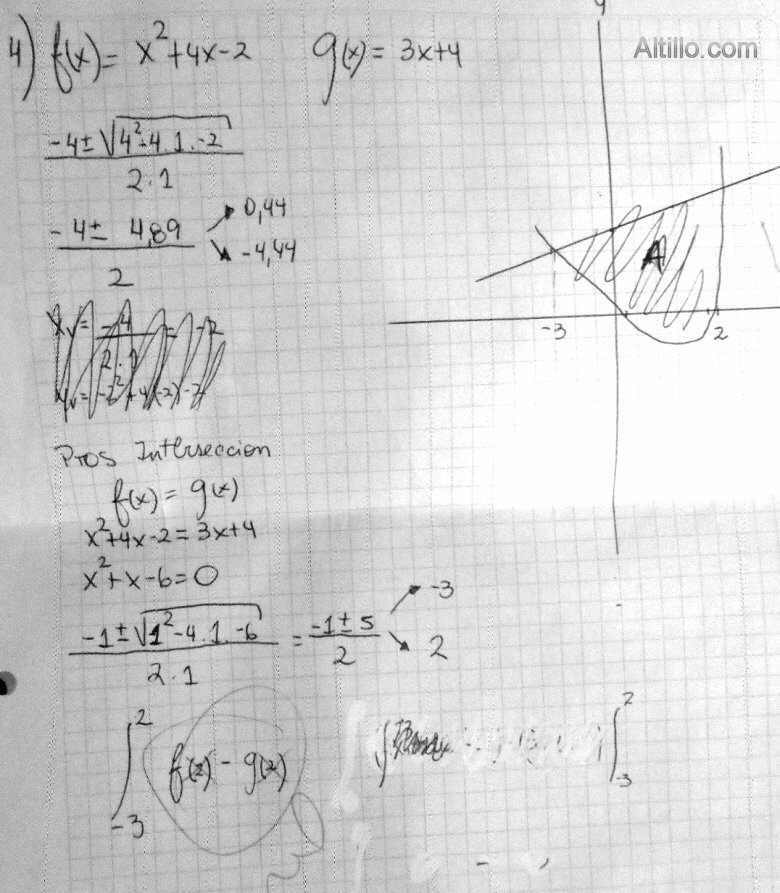 4) f(x) = x²+4x-2 g(x) = 3x+4
Altillo.com
y
-4±√4²-4.1.-2
2.1
-4± 4,89
2
0,44
-4,44
A
-3
2
Ptos Interseccion
f(x) = g(x)
x²+4x-2 = 3x+4
x²+x-6=0
-1±√1²-4.1.-6 = -1±5
2.1 2
-3
2
∫ 2 -3 f(x) - g(x)
∫ 2 -3